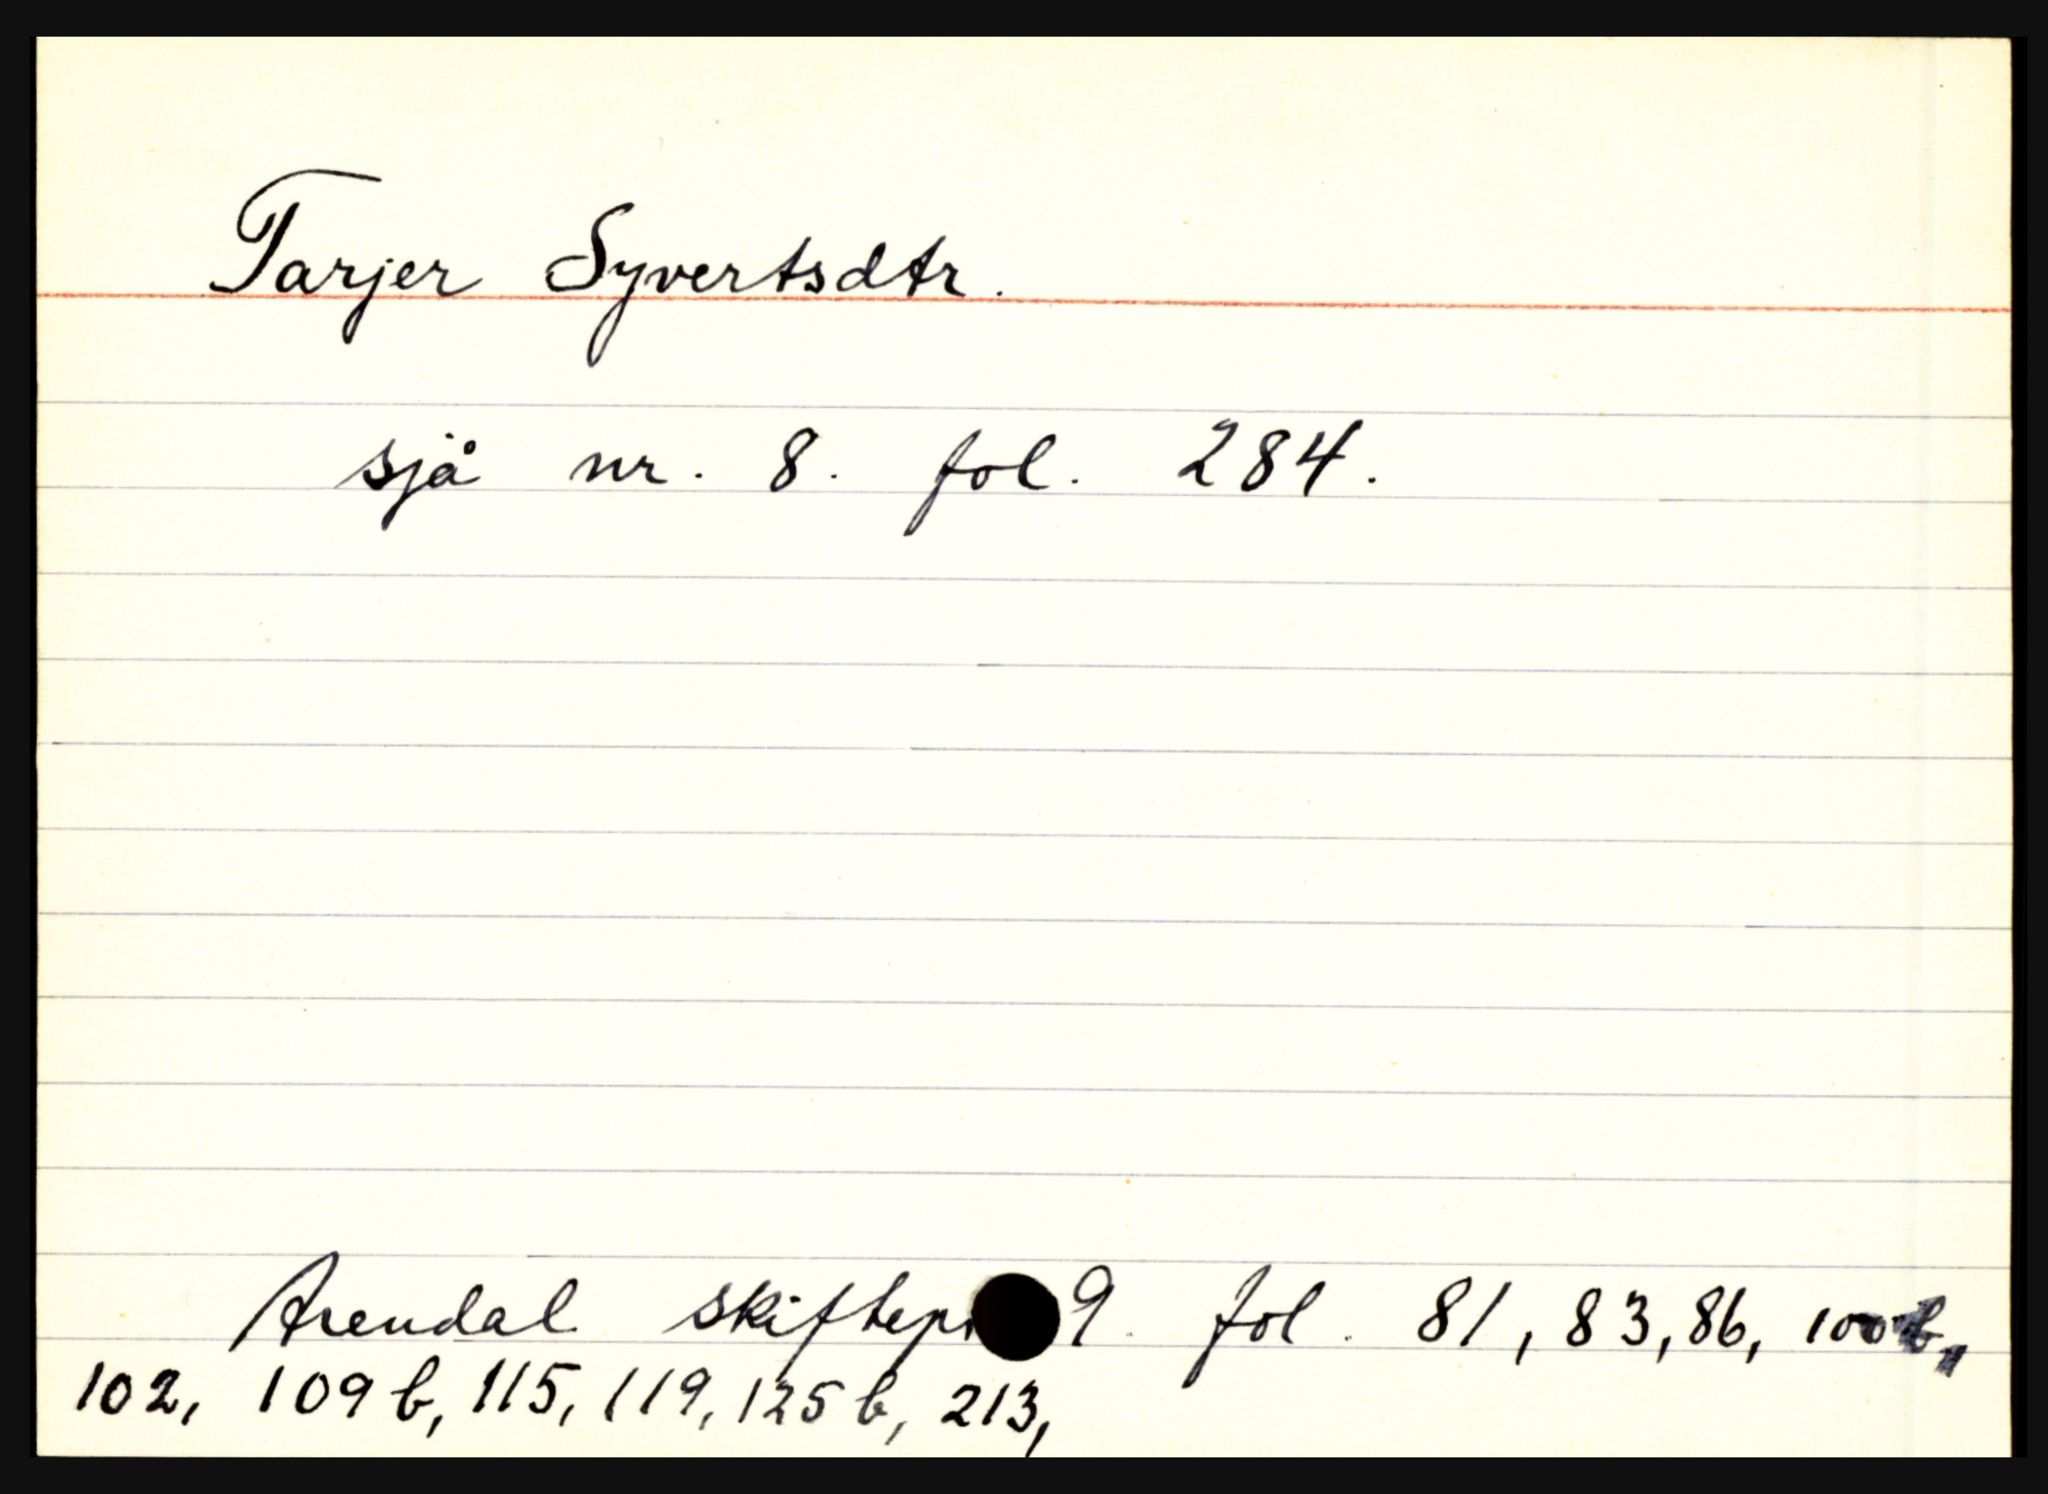 Tarjer Syvertsdtr.
sjå nr. 8. fol. 284.
Arendal skiftepr 9. fol. 81, 83, 86, 100b,
102, 109b, 115, 119, 125b, 213,